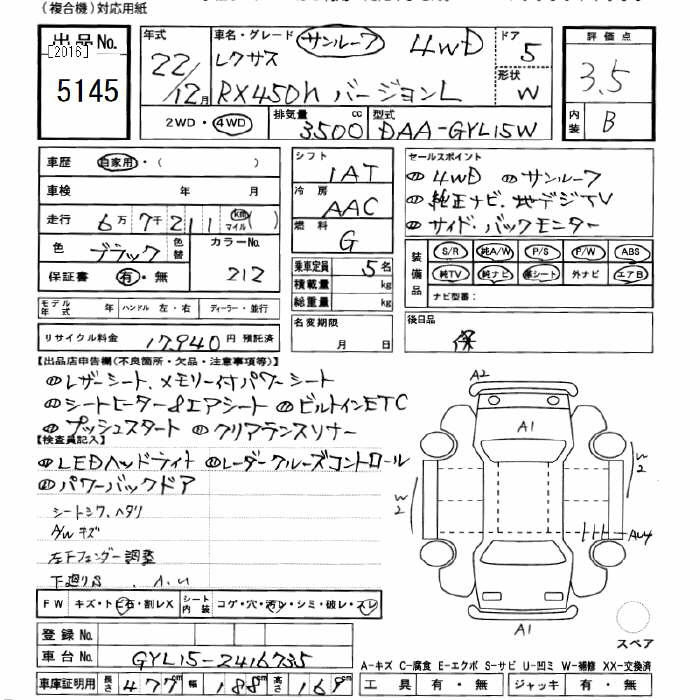 (複合機)対応用紙
出品No. [2016] 5145
年式 22/12月
車名・グレード サンルーフ 4WD
レクサス
RX450h バージョンL
ドア 5
形状 W
評価点 3.5
内装 B
2WD・4WD 排気量 3500 cc 型式 DAA-GYL15W
車歴 自家用・( )
車検 年 月
走行 6万7千211 km マイル( )
色 ブラック 色替 カラーNo. 212
保証書 有・無
モデル年式 年 ハンドル 左・右 ディーラー・並行
リサイクル料金 17,940円 預託済
シフト 1AT
冷房 AAC
燃料 G
乗車定員 5名
積載量 kg
総重量 kg
名変期限 月 日
セールスポイント
4WD サンルーフ
純正ナビ、地デジTV
サイド、バックモニター
装備品 S/R 純A/W P/S P/W ABS
純TV 純ナビ 革シート 外ナビ エアB
ナビ型番:
後日品
保
【出品店申告欄(不良箇所・欠品・注意事項等)】
レザーシート、メモリー付パワーシート
シートヒーター&エアシート ビルトインETC
プッシュスタート クリアランスソナー
【検査員記入】
LEDヘッドライト レーダークルーズコントロール
パワーバックドア
シートシワ、ヘタリ
A/Wキズ
左Fフェンダー調整
下廻りS
FW キズ・トビ石・割レX シート内装 コゲ・穴・汚レ・シミ・破レ・スレ
登録No.
車台No. GYL15-2416735
車庫証明用 長さ 477 幅 188 高さ 169
A2
A1
W2
W2
A1
スペア
A-キズ C-腐食 E-エクボ S-サビ U-凹ミ W-補修 XX-交換済
工具 有・無 ジャッキ 有・無